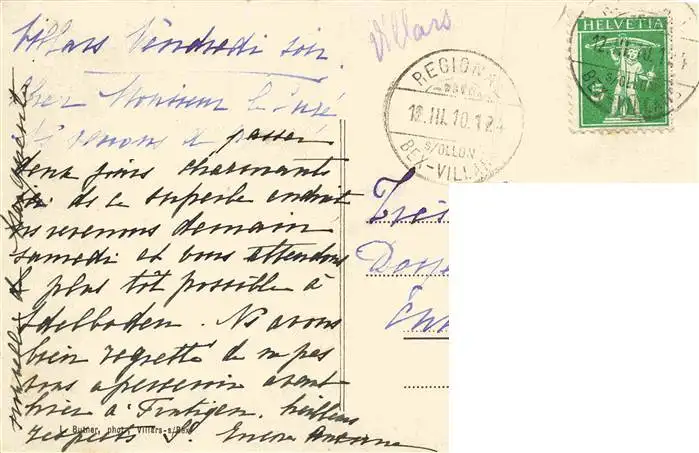 Villars Vendredi soir
Villars
Cher Monsieur le Curé
Ns venons de passer
deux jours charmants
ds ce superbe endroit
Ns revenons demain
samedi et vous attendons
le plus tôt possible à
Adelboden. Ns avons
bien regretté de ne pas
vous apercevoir avant
hier à Frutigen. Meilleurs
respects
nouvelles de
HELVETIA
5
REGIONAL
12.III.10.12
S/OLLON
BEX-VILLARS
12.III.10.12
S/OLLON
BEX-VILLARS
Très
J. Butner, phot., Villars-s/Bex